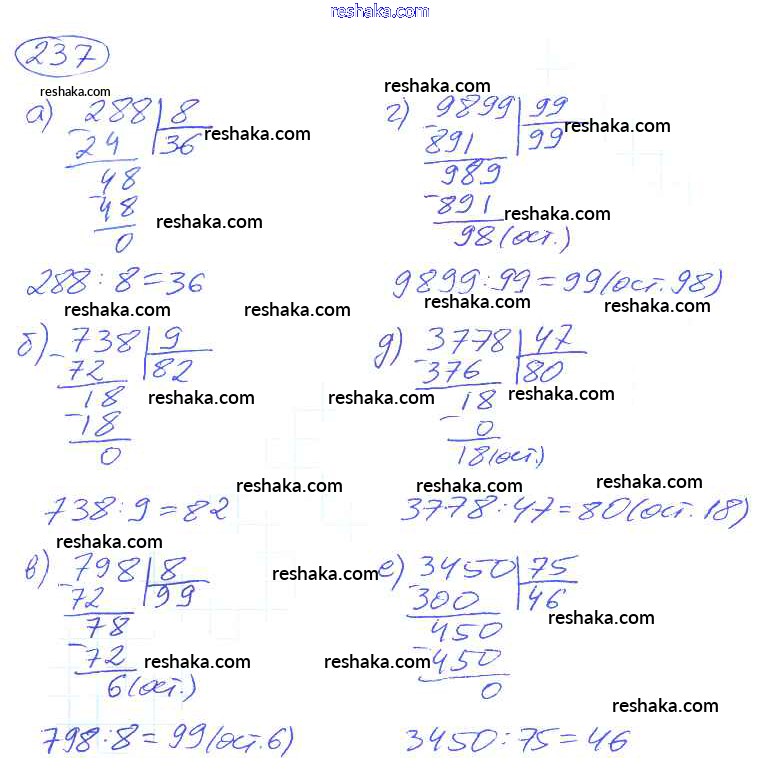 reshaka.com
237
reshaka.com
а) 288 | 8
- 24 | 36 reshaka.com
48
- 48 reshaka.com
0
288 : 8 = 36
reshaka.com
reshaka.com
б) - 738 | 9
72 | 82
18 reshaka.com
- 18
0
reshaka.com
738 : 9 = 82
reshaka.com
в) 798 | 8 reshaka.com
- 72 | 99
78
- 72 reshaka.com
6 (ост.)
798 : 8 = 99 (ост. 6)
reshaka.com
г) 9899 | 99
- 891 | 99 reshaka.com
989
- 891 reshaka.com
98 (ост.)
9899 : 99 = 99 (ост. 98)
reshaka.com reshaka.com
д) 3778 | 47
- 376 | 80
reshaka.com 18 reshaka.com
- 0
18 (ост.)
reshaka.com reshaka.com
3778 : 47 = 80 (ост. 18)
е) 3450 | 75
- 300 | 46
450 reshaka.com
- 450
reshaka.com 0
reshaka.com
3450 : 75 = 46